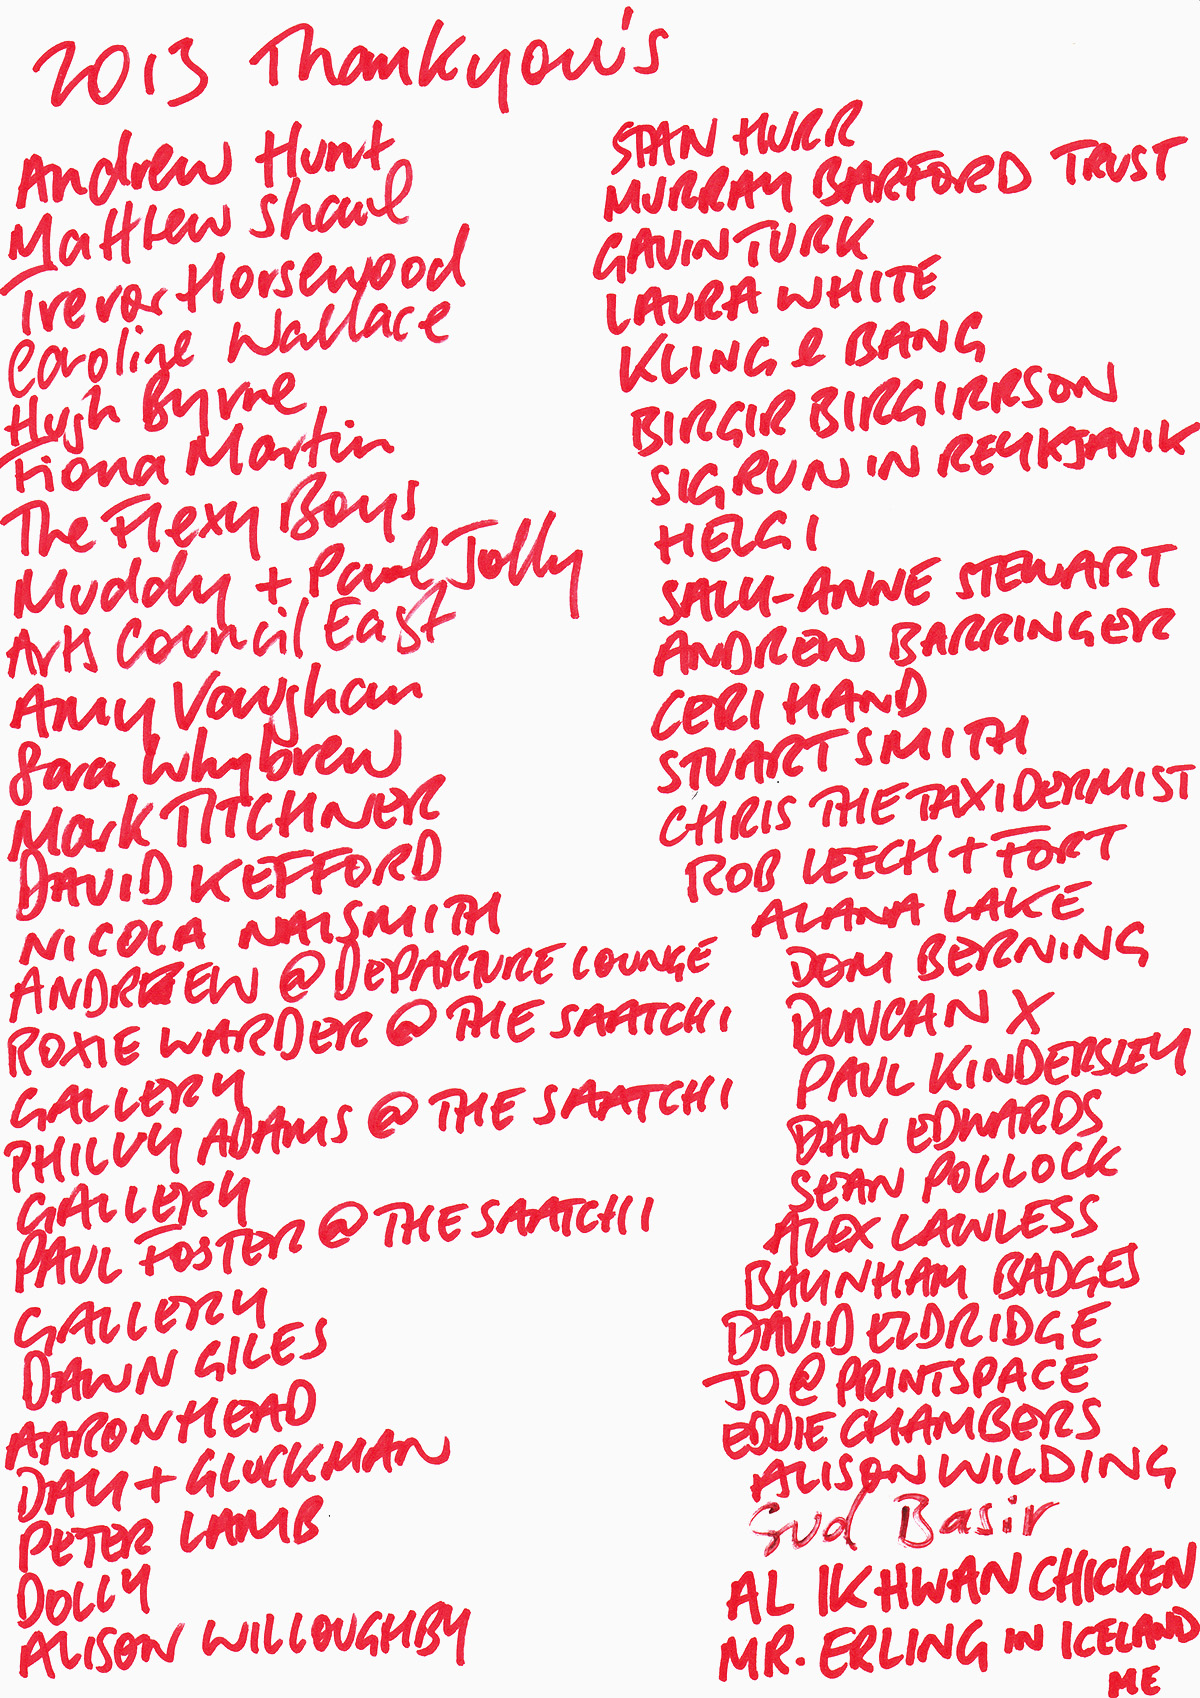 2013 Thankyou's
Andrew Hunt
Matthew Shaul
Trevor Horsewood
Caroline Wallace
Hugh Byrne
Fiona Martin
The Flexy Boys
Muddy + Paul Jolly
Arts Council East
Amy Vaughan
Sara Whybrew
Mark TITCHNER
DAVID KEFFORD
NICOLA NAISMITH
ANDREW @ DEPARTURE LOUNGE
ROXIE WARDER @ THE SAATCHI
GALLERY
PHILLY ADAMS @ THE SAATCHI
GALLERY
PAUL FOSTER @ THE SAATCHI
GALLERY
DAWN GILES
AARON HEAD
DAY + GLUCKMAN
PETER LAMB
DOLLY
ALISON WILLOUGHBY
STAN HURR
MURRAY BARFORD TRUST
GAVIN TURK
LAURA WHITE
KLING & BANG
BIRGIR BIRGIRRSON
SIGRUN IN REYKJAVIK
HELGI
SALLY-ANNE STEWART
ANDREW BARRINGER
CERI HAND
STUART SMITH
CHRIS THE TAXIDERMIST
ROB LEECH + FORT
ALANA LAKE
DOM BERNING
DUNCAN X
PAUL KINDERSLEY
DAN EDWARDS
SEAN POLLOCK
ALEX LAWLESS
BAYNHAM BADGES
DAVID ELDRIDGE
JO @ PRINTSPACE
EDDIE CHAMBERS
ALISON WILDING
Sud Basir
AL IKHWAN CHICKEN
MR. ERLING IN ICELAND
ME